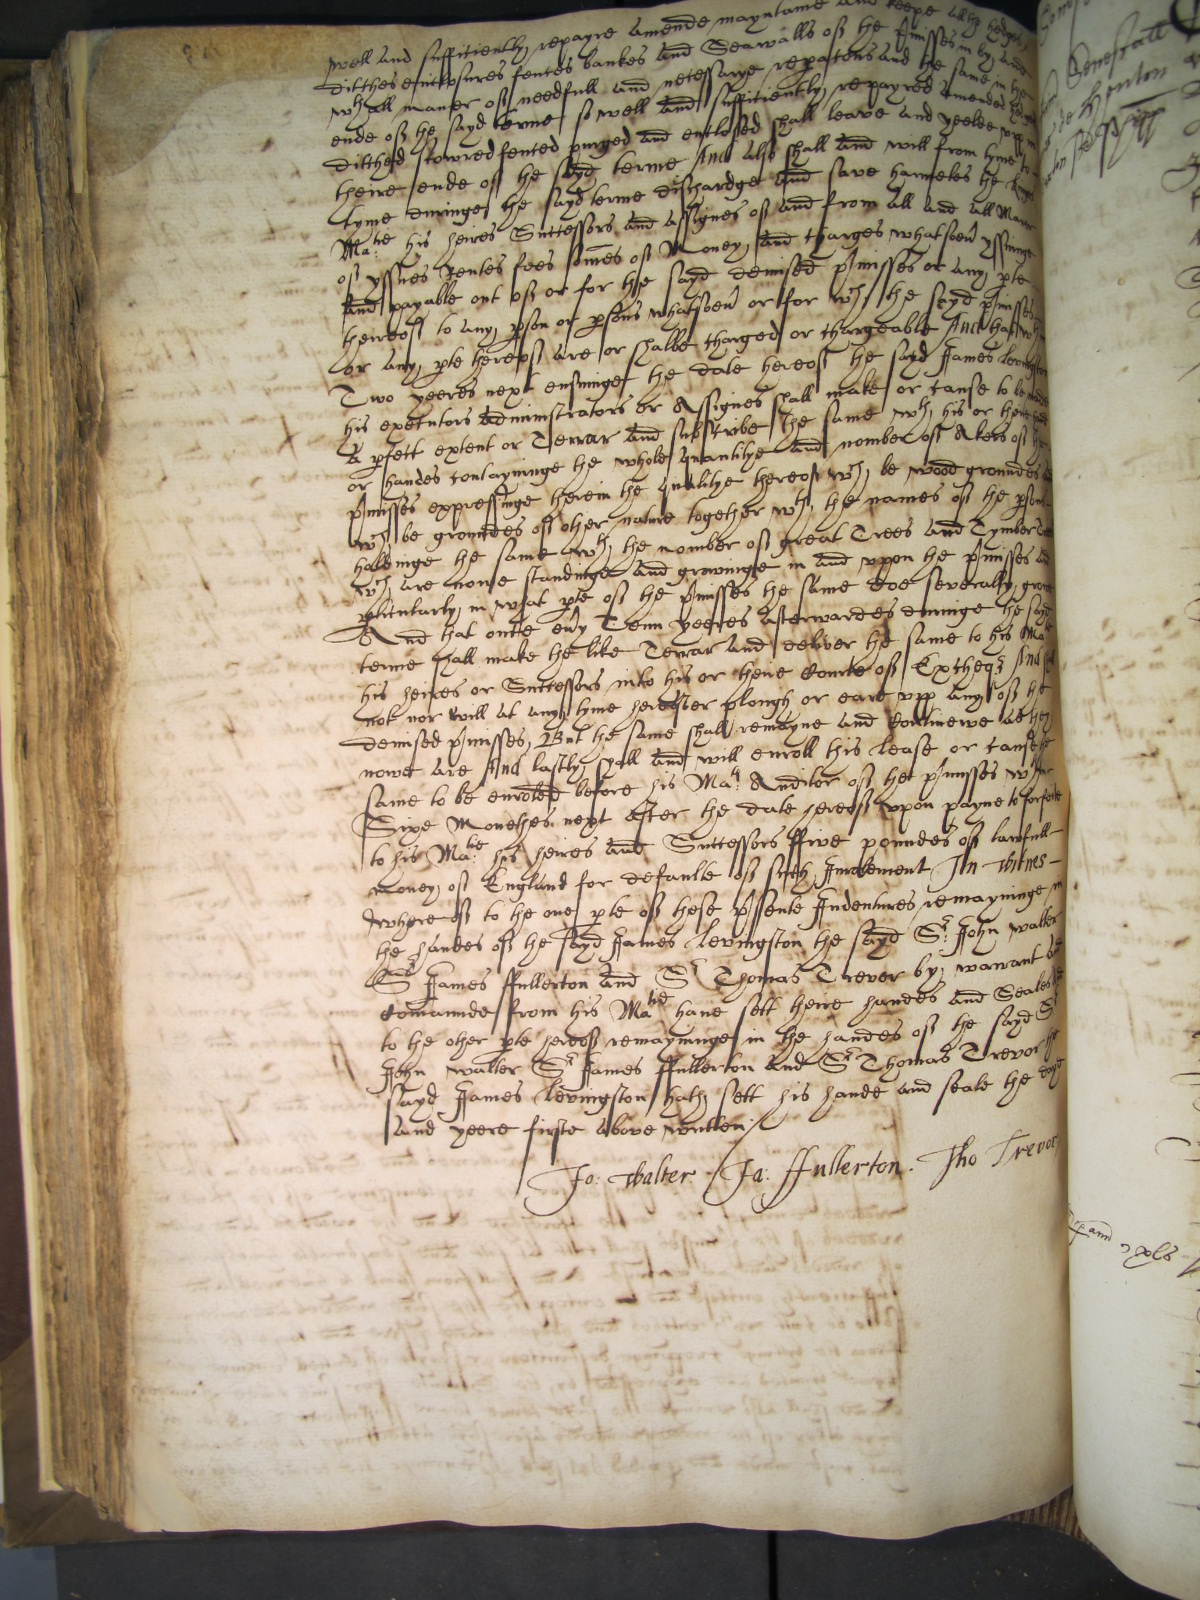 well and suffitiently repayre amende mayntaine and keepe all the hedges
ditthes enclosures fences bankes and Seawalls of the p[re]misses in by and
wth all maner of needfull and necessarye repac[i]ons and the same in the
ende of the sayd terme so well and suffitiently repayred amended
ditched scowred fenced purged and enclosed shall leave and yeelde upp
theire ende of the sayd terme And also shall and will from tyme to
tyme duringe the sayd terme dischardge and save harmeles the Kings
Matie his heires Successors and Assignes of and from all and all Maner
of yssues Rentes fees somes of Money and charges whatsoeu[er] yssuinge
and payable out of or for the sayd demised p[re]misses or any p[ar]te
thereof to any p[er]son or p[er]sons whatsoeu[er] or for wch the sayd p[re]misses
or any p[ar]te thereof are or shalbe charged or chargeable And that wthin
Two yeeres next ensuinge the date hereof the sayd James Levingston
his executors administrators or Assignes shall make or cause to be made
A p[er]fect extent or Terrar and subscribe the same wth his or their hande
or handes contayninge the whole quantitye and nomber of Akers of the
p[re]misses expressinge therein the qualitye thereof wch be wood groundes
wch be groundes of other nature together wth the names of the p[er]sons
holdinge the same wth the nomber of great Trees and Tymber Trees
wch are nowe standinge and growinge in and uppon the p[re]misses and
p[ar]ticularly in what p[ar]te of the p[re]misses the same doe severally growe
And that once eu[er]y Tenn yeeres afterwardes duringe the sayd
terme shall make the like Terrar and deliver the same to his Matie
his heires or Successors into his or theire Courte of Excheqr And
not nor will at any tyme hereafter plough or eare upp any of the
demised p[re]misses, But the same shall remayne and Continewe as they
nowe are And lastly shall and will enroll this lease or cause the
same to be enrolled before his Mats Auditor of the p[re]misses wthin
Sixe Monethes next after the date hereof upon payne to forfeite
to his Matie his heires and Successors ffive poundes of lawfull
money of England for defaulte of such Inrolement In witnes
whereof to the one p[ar]te of these p[re]sente Indentures remayninge in
the handes of the sayd James Levingston the sayd Sr John walter
Sr James ffullerton and Sr Thomas Trevor by warrant and
Comaunde from his Matie have sett theire handes and Seales
to the other p[ar]te hereof remayninge in the handes of the sayd Sr
John walter Sr James ffullerton and Sr Thomas Trevor the
sayd James Levingston hath sett his hande and seale the daye
and yeere firste above written
Jo: Walter. Ja: ffullerton. Tho Trevor